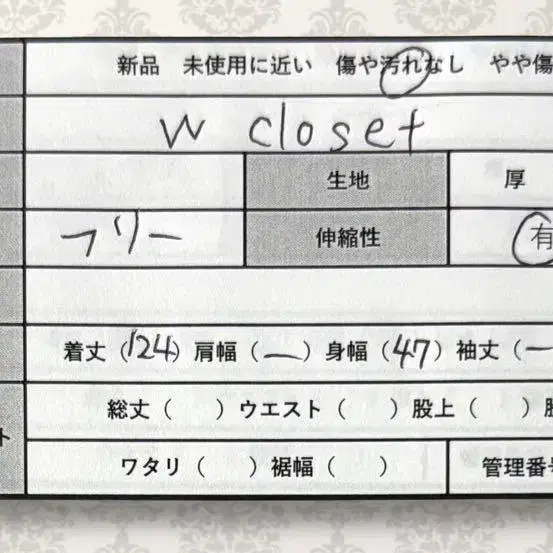 新品 未使用に近い 傷や汚れなし やや傷
w closet
生地 厚
フリー 伸縮性 有
着丈(124)肩幅(ー)身幅(47)袖丈(ー
総丈( )ウエスト( )股上( )
ト
ワタリ( )裾幅( ) 管理番号